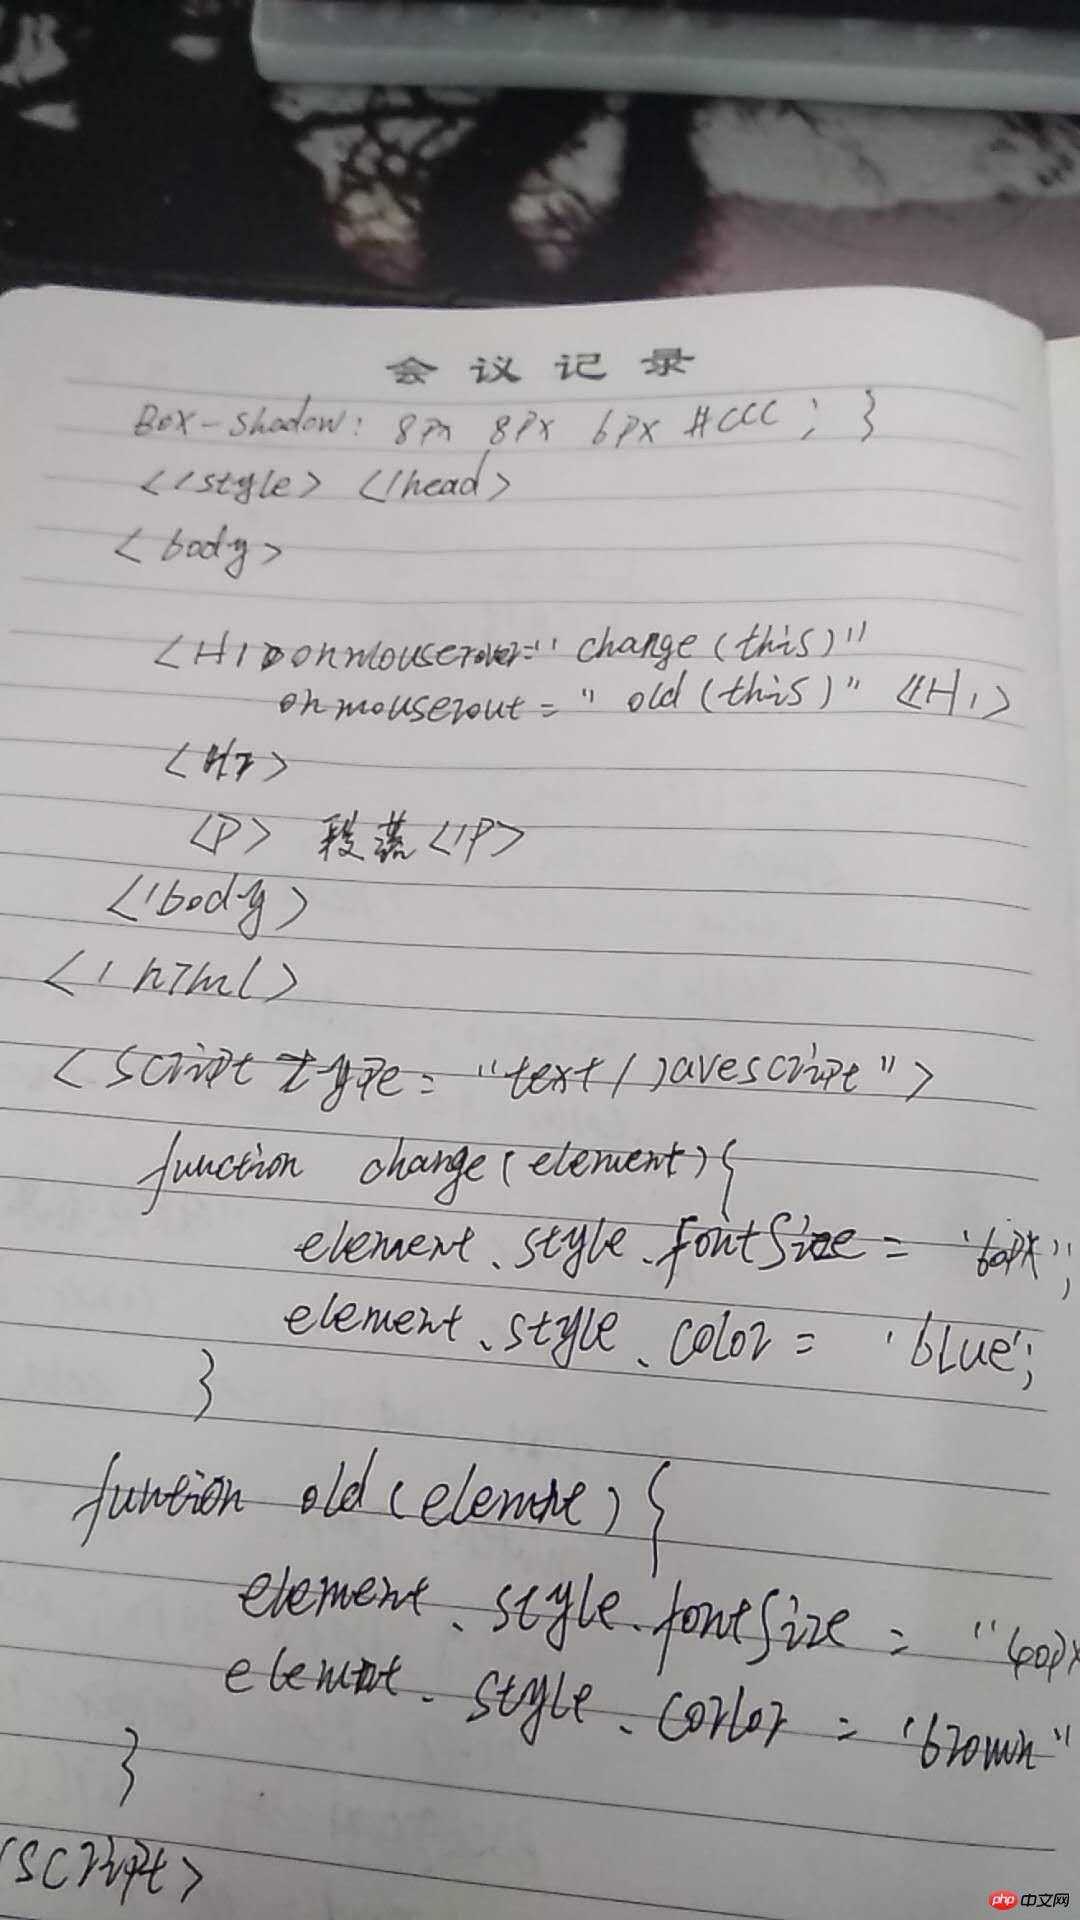 会议记录
Box-shadow: 8px 8px 6px #CCC ; }
</style> </head>
<body>
<H1 onmouserover="change(this)"
onmouserout="old(this)" </H1>
<Hr>
<P> 段落</P>
</body>
</html>
<script type="text/javescript">
function change(element){
element.style.fontSize = '60px';
element.style.color = 'blue';
}
function old(elemnt){
element.style.fontSize = "40px
elemnt.style.corlor = 'brown"
}
script>
php 中文网